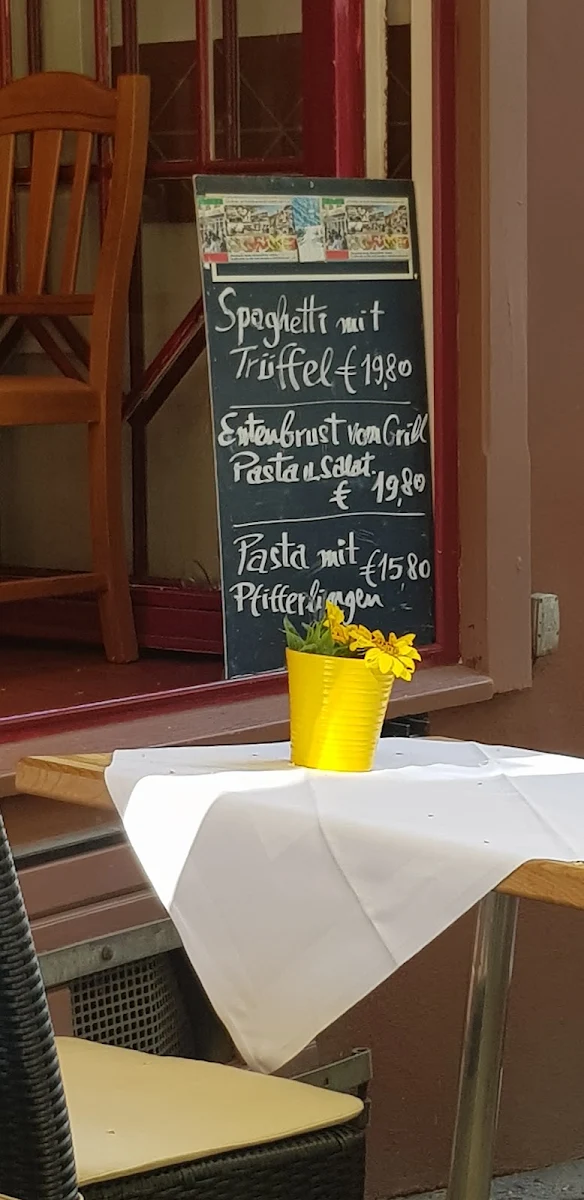 Spaghetti mit
Trüffel € 19,80
Entenbrust vom Grill
Pasta u. Salat.
€ 19,80
Pasta mit €15,80
Pfifferlingen